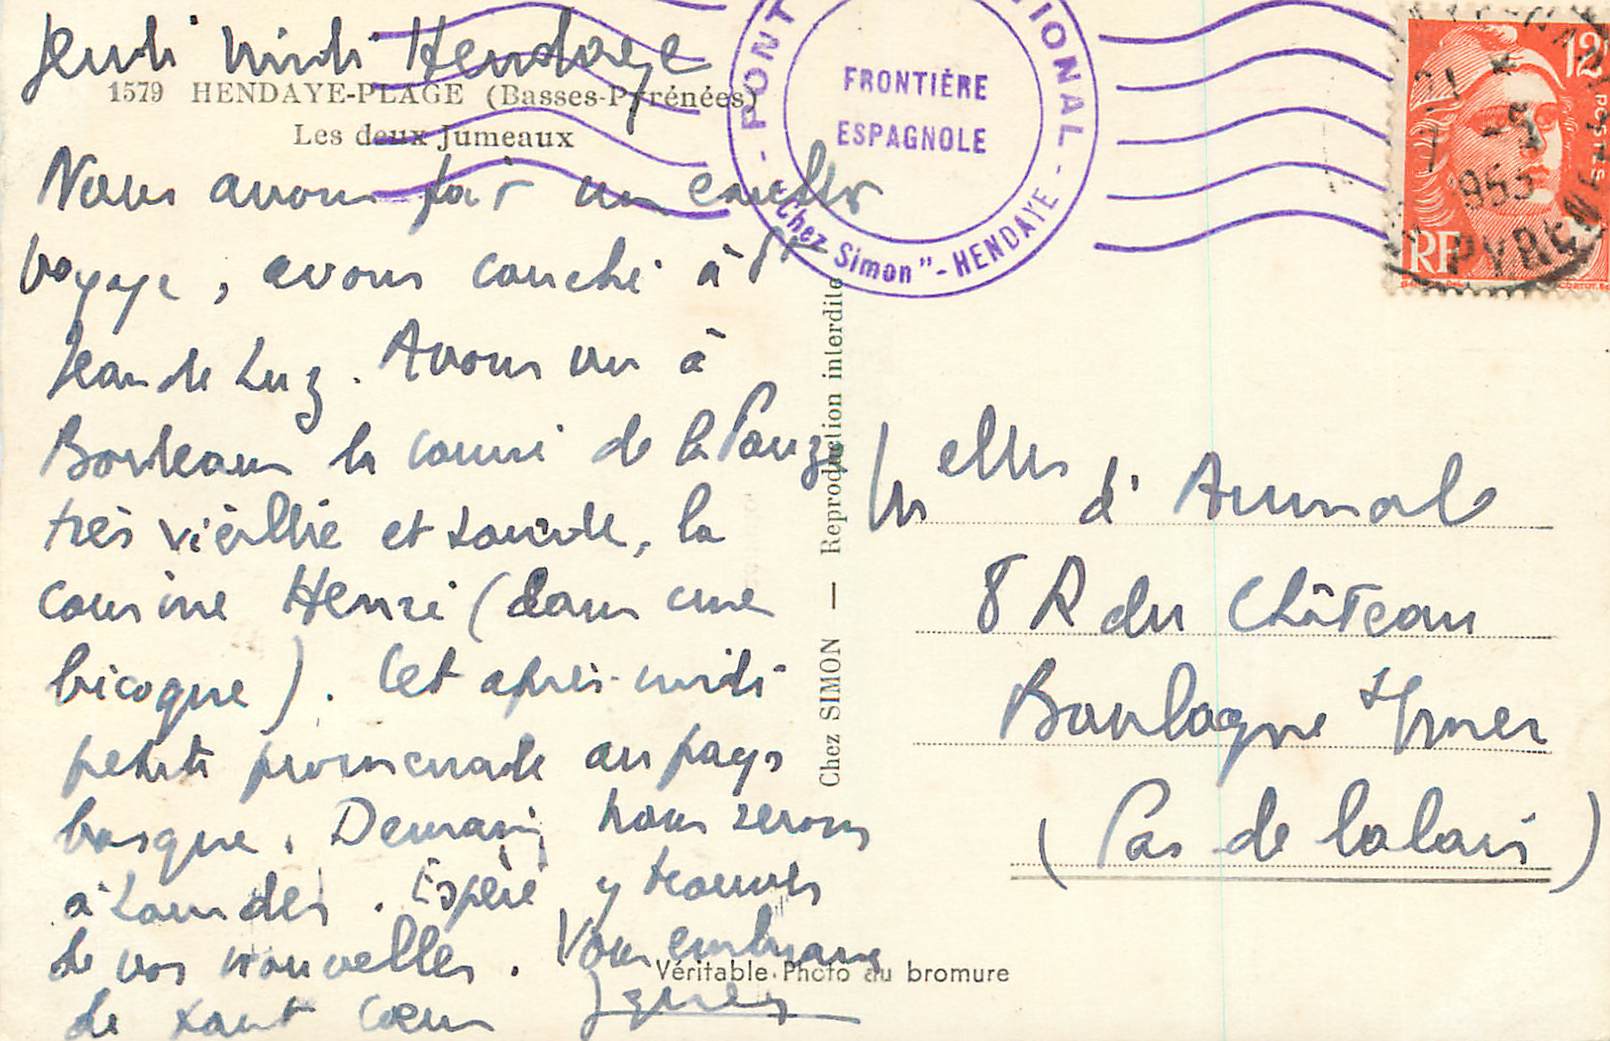 Jeudi midi Hendaye
1579 HENDAYE-PLAGE (Basses-Pyrénées)
Les deux Jumeaux
Nous avons fait un excellent
voyage, avons couché à St
Jean de Luz. Avons vu à
Bordeaux la cousine de la
très vieillie et sourde, la
cousine Henri (dans une
bicoque). Cet après-midi
petite promenade au pays
basque. Demain nous serons
à Lourdes. Espère y trouver
de vos nouvelles. Vous embrasse
de tout cœur Agnès
PONT
TIONAL
FRONTIÈRE
ESPAGNOLE
"Chez Simon" - HENDAYE -
12F
POSTES
1953
RF
PYRÉNÉES
Chez SIMON — Reproduction interdite
Melles d'
8 R du Château
Boulogne s/mer
(Pas de Calais)
Véritable Photo au bromure